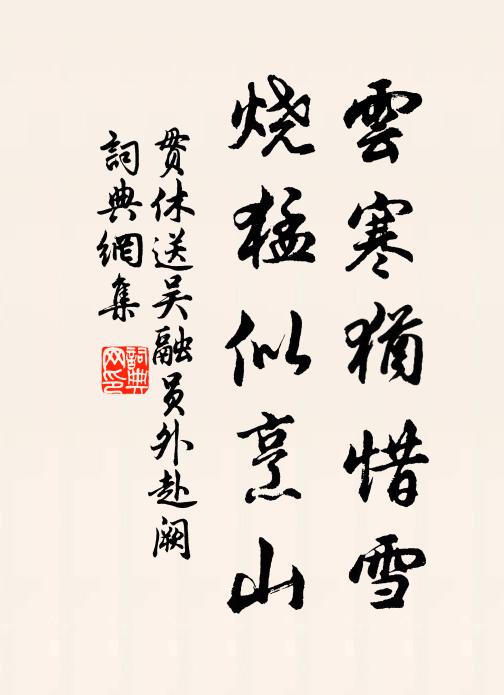 雲寒猶惜雪
烧猛似烹山
贯休送吴融员外赴阙
詞典網集
詞典網印